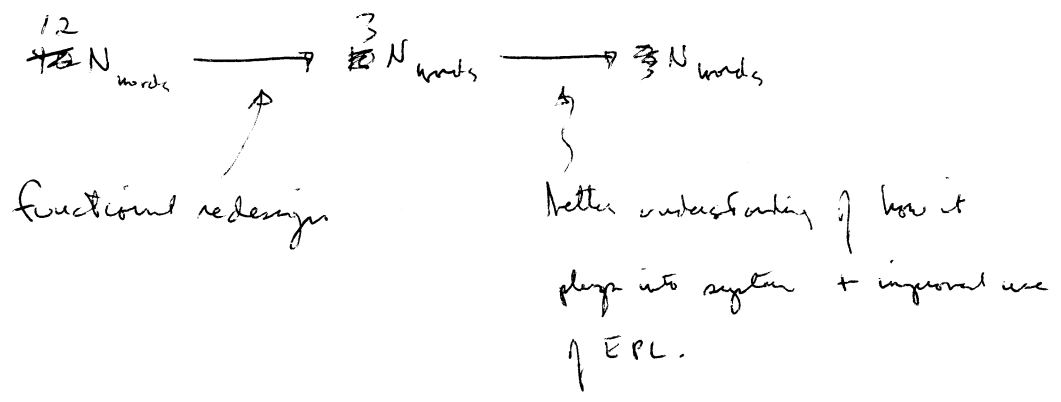 12 3
N words → N words → N words
functional redesign
better understanding of how it
plays into system + improved use
of EPL.